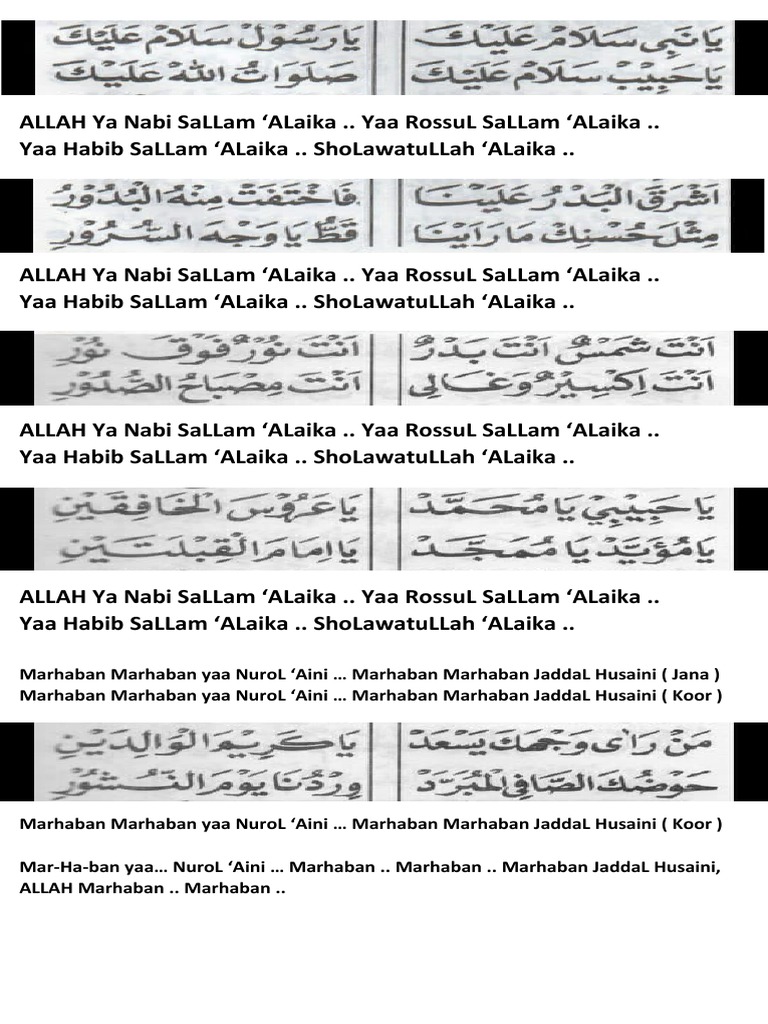 يَا نَبِى سَلَامْ عَلَيْكَ يَا رَسُوْلْ سَلَامْ عَلَيْكَ
يَا حَبِيْبْ سَلَامْ عَلَيْكَ صَلَوَاتُ اللهْ عَلَيْكَ
ALLAH Ya Nabi SaLLam ‘ALaika .. Yaa RossuL SaLLam ‘ALaika ..
Yaa Habib SaLLam ‘ALaika .. ShoLawatuLLah ‘ALaika ..
اَشْرَقَ الْبَدْرُ عَلَيْنَا فَاخْتَفَتْ مِنْهُ الْبُدُوْرُ
مِثْلَ حُسْنِكْ مَا رَاَيْنَا قَطُّ يَا وَجْهَ السُّرُوْرِ
ALLAH Ya Nabi SaLLam ‘ALaika .. Yaa RossuL SaLLam ‘ALaika ..
Yaa Habib SaLLam ‘ALaika .. ShoLawatuLLah ‘ALaika ..
اَنْتَ شَمْسٌ اَنْتَ بَدْرٌ اَنْتَ نُوْرٌ فَوْقَ نُوْرِ
اَنْتَ اِكْسِيْرٌ وَغَالِى اَنْتَ مِصْبَاحُ الصُّدُوْرِ
ALLAH Ya Nabi SaLLam ‘ALaika .. Yaa RossuL SaLLam ‘ALaika ..
Yaa Habib SaLLam ‘ALaika .. ShoLawatuLLah ‘ALaika ..
يَا حَبِيْبِيْ يَا مُحَمَّدْ يَا عَرُوْسَ الْخَافِقَيْنِ
يَا مُؤَيَّدْ يَا مُمَجَّدْ يَا اِمَامَ الْقِبْلَتَيْنِ
ALLAH Ya Nabi SaLLam ‘ALaika .. Yaa RossuL SaLLam ‘ALaika ..
Yaa Habib SaLLam ‘ALaika .. ShoLawatuLLah ‘ALaika ..
Marhaban Marhaban yaa NuroL ‘Aini … Marhaban Marhaban JaddaL Husaini ( Jana )
Marhaban Marhaban yaa NuroL ‘Aini … Marhaban Marhaban JaddaL Husaini ( Koor )
مَنْ رَاٰى وَجْهَكَ يَسْعَدْ يَا كَرِيْمَ الْوَالِدَيْنِ
حَوْضُكَ الصَّافِى الْمُبَرَّدْ وِرْدُنَا يَوْمَ النُّشُوْرِ
Marhaban Marhaban yaa NuroL ‘Aini … Marhaban Marhaban JaddaL Husaini ( Koor )
Mar-Ha-ban yaa… NuroL ‘Aini … Marhaban .. Marhaban .. Marhaban JaddaL Husaini,
ALLAH Marhaban .. Marhaban ..